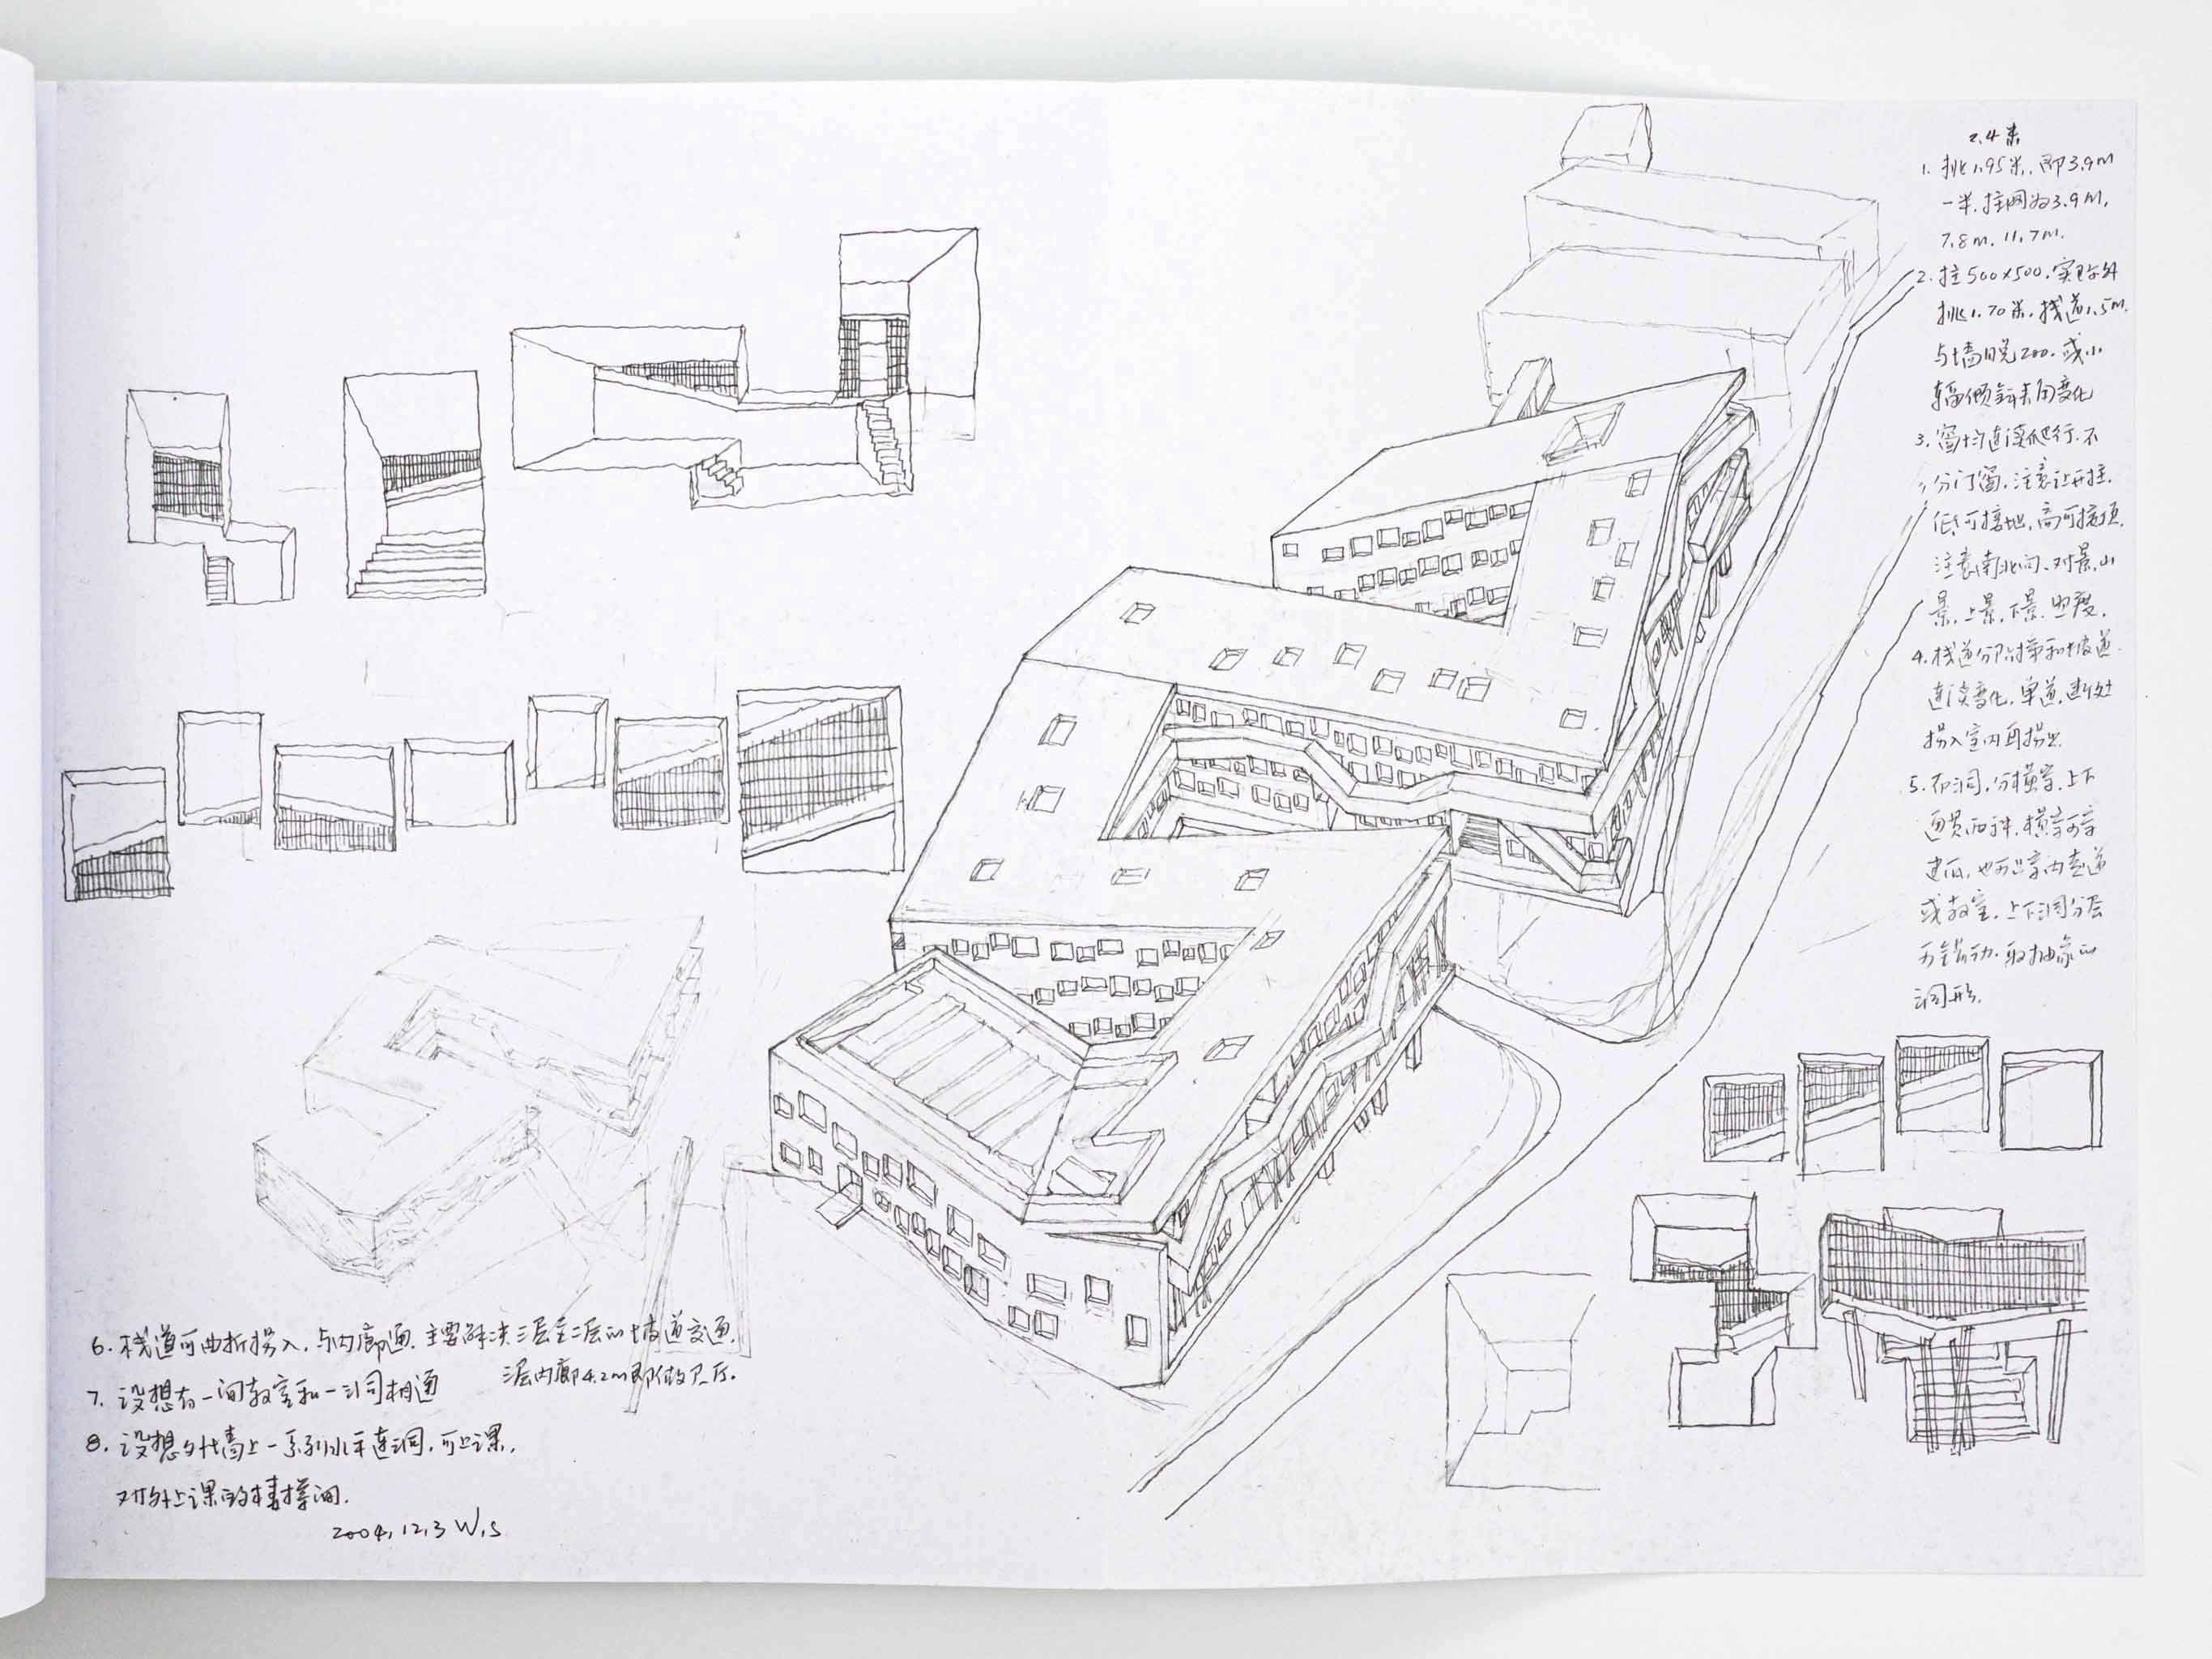 2.4米
1. 挑1.95米, 即3.9m
一半. 柱网为3.9m,
7.8m. 11.7m.
2. 柱500×500. 实际外
挑1.70米. 栈道1.5m.
与墙脱200. 或小
幅倾斜夹角变化
3. 窗均连续爬行. 不
分门窗, 注意让开柱.
低可接地, 高可接顶.
注意南北向、对景, 山
景, 上景, 下景. 密度.
4. 栈道分阶梯和坡道
连续变化, 单道, 断处
拐入室内再拐出.
5. 不洞, 分横穿, 上下
通贯两种. 横穿可穿
也可只穿内走道
或教室, 上下洞分层
可错动. 取抽象的
洞形.
6. 栈道可曲折拐入, 与内廊通. 主要解决三层至二层的坡道交通.
层内廊4.2m即作放大厅.
7. 设想有一间教室和一洞相通
8. 设想外墙上一系列水平连洞, 可上课,
对外上课的
2004.12.3 W.S